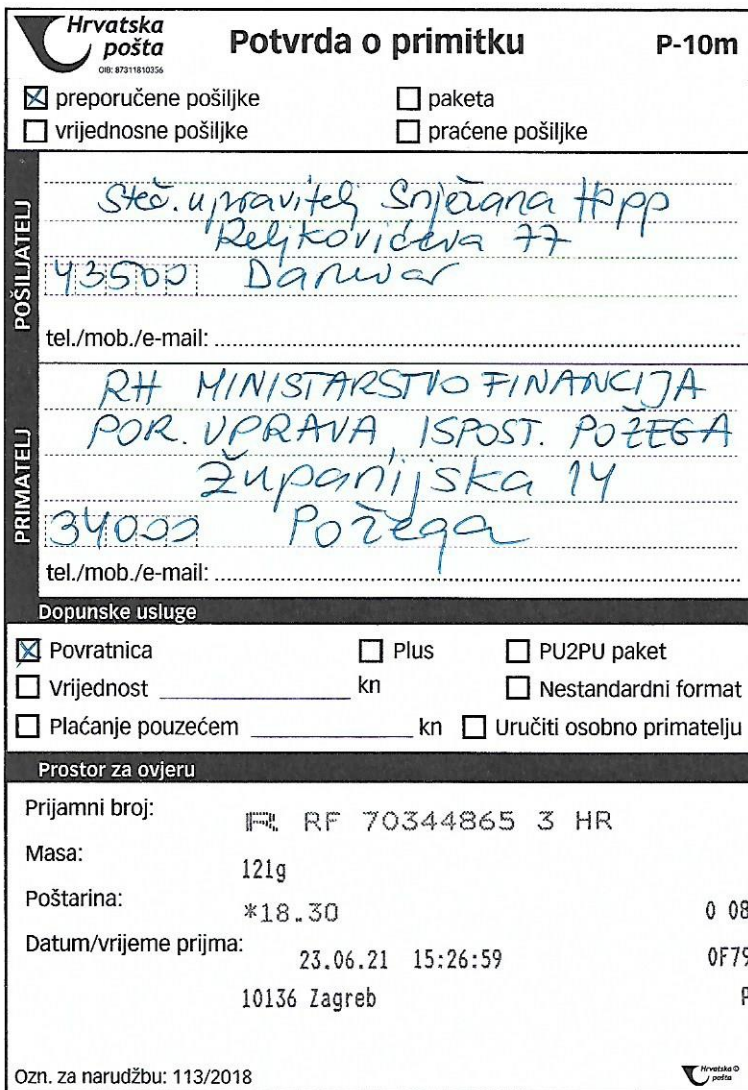 Hrvatska
pošta
OIB: 87311810356
Potvrda o primitku
P-10m
☒ preporučene pošiljke ☐ paketa
☐ vrijednosne pošiljke ☐ praćene pošiljke
POŠILJATELJ
Steč. upravitelj Snježana Hopp
Reljkovićeva 77
43500 Daruvar
tel./mob./e-mail:
PRIMATELJ
RH MINISTARSTVO FINANCIJA
POR. UPRAVA, ISPOST. POŽEGA
Županijska 14
34000 Požega
tel./mob./e-mail:
Dopunske usluge
☒ Povratnica ☐ Plus ☐ PU2PU paket
☐ Vrijednost kn ☐ Nestandardni format
☐ Plaćanje pouzećem kn ☐ Uručiti osobno primatelju
Prostor za ovjeru
Prijamni broj: R RF 70344865 3 HR
Masa: 121g
Poštarina: *18.30 0 08
Datum/vrijeme prijma: 23.06.21 15:26:59 0F79
10136 Zagreb P
Ozn. za narudžbu: 113/2018
Hrvatska
pošta